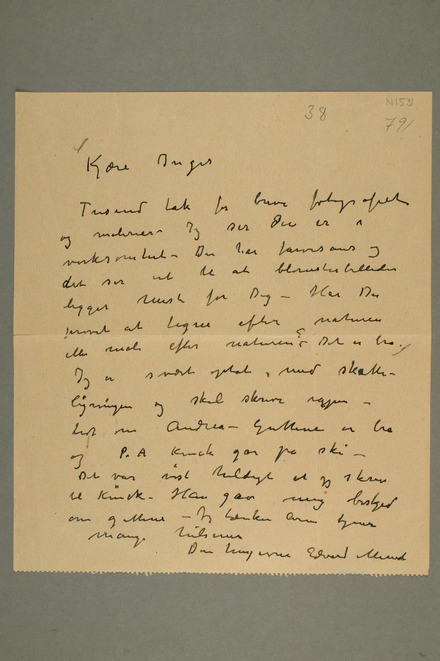 38
N1531
791
Kjære Inger
Tusend tak for brev fotografiet
og malerier – Jeg ser Du er i
virksomhed – Du har farvesans og
det ser ut til at blomsterbilleder
ligger for Dig – Har Du
prøvet at tegne efter naturen
eller male efter naturen? – Det er bra.
Jeg er svært optat med skatte-
ligningen og skal skrive
om Andrea – Guttene er bra
og P.A Kinck gar på ski –
Det var vist heldigt at jeg skrev
til Kinck – Han gav mig besked
om guttene – Jeg tænker
mange hilsener
Din hengivne Edvard Munch